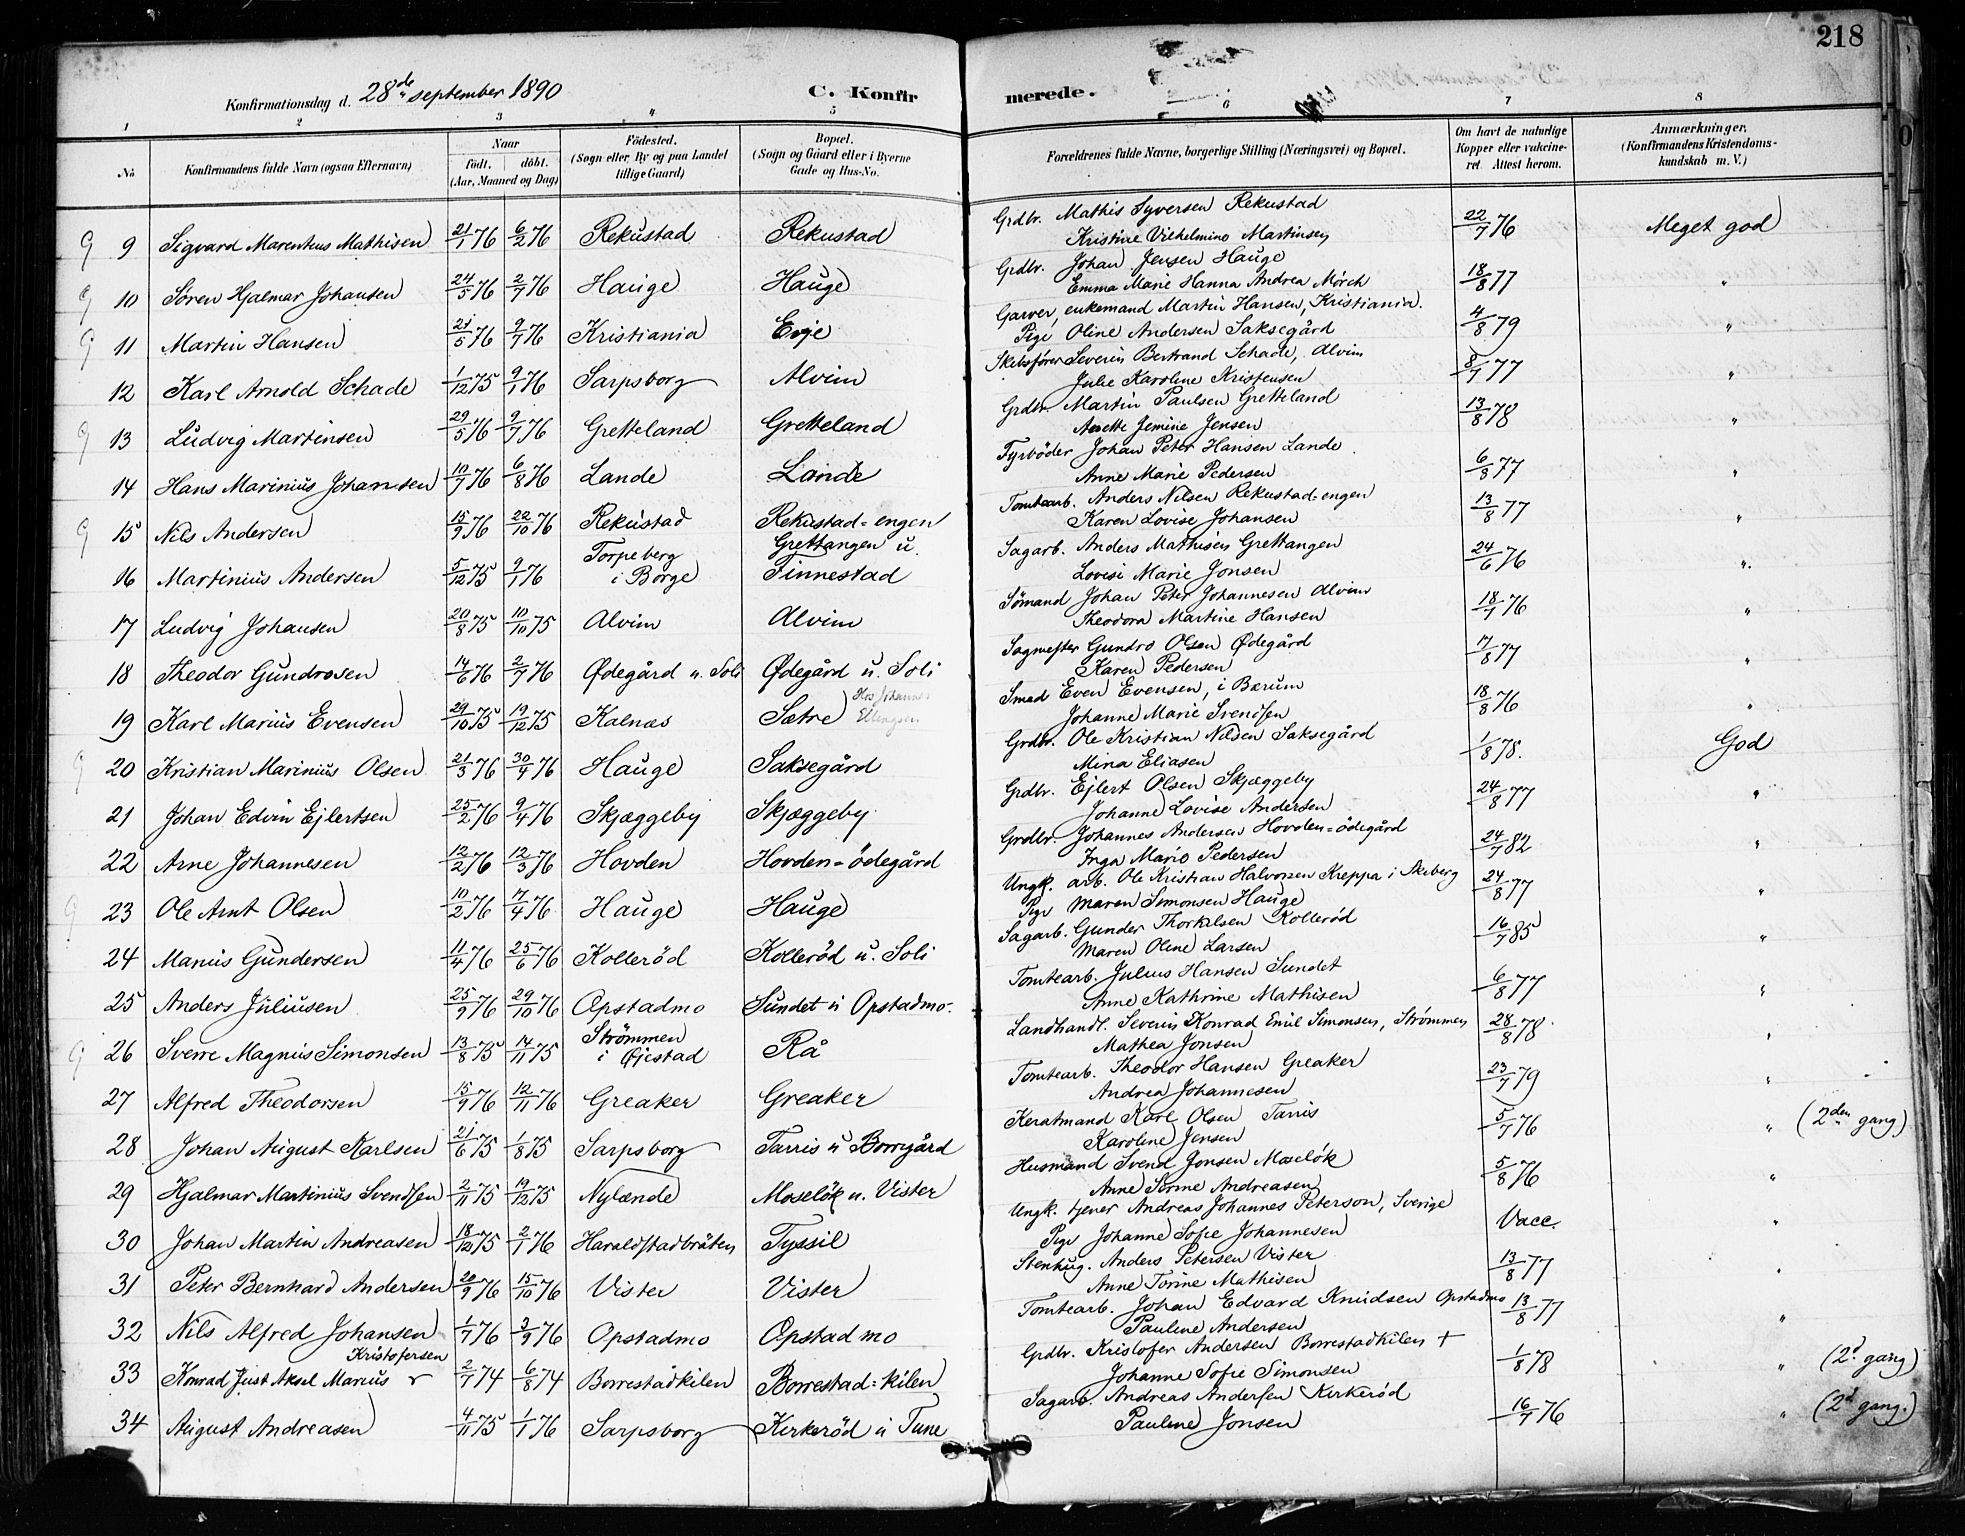 218
Konfirmationsdag d. 28de september 1890 C. Konfirmerede.
1 2 3 " 5 6 7 8
No
Konfirmandens fulde Navn (ogsaa Efternavn)
Naar født. døbt. (Aar, Maaned og Dag)
Fødested. (Sogn eller By og paa Landet tillige Gaard)
Bopæl. (Sogn og Gaard eller i Byerne Gade og Hus-No.
Forældrenes fulde Navne, borgerlige Stilling (Næringsvei) og Bopæl.
Om havt de naturlige Kopper eller vakcineret. Attest herom.
Anmærkninger. (Konfirmandens Kristendomskundskab m. V.)
9 Sigvard Marentius Mathisen 21/1 76 6/2 76 Rekustad Rekustad Grdbr. Mathis Syversen Rekustad 22/7 76 Meget god
Kristine Vilhelmine Martinsen
10 Søren Hjalmar Johansen 24/5 76 2/7 76 Hauge Hauge Grdbr. Johan Jensen Hauge 18/8 77 "
Emma Marie Hanna Andrea Mørch
11 Martin Hansen 21/5 76 9/7 76 Kristiania Evje Garver, enkemand Martin Hansen, Kristiania. 4/8 79 "
Pige Oline Andersen Saksegård
12 Karl Arnold Schade 1/12 75 9/1 76 Sarpsborg Alvim Skibsfører Severin Bertrand Schade, Alvim 8/7 77 "
Julie Karoline Kristensen
13 Ludvig Martinsen 29/5 76 9/7 76 Gretteland Gretteland Grdbr. Martin Paulsen Gretteland 13/8 78 "
Anette Jemine Jensen
14 Hans Marinius Johansen 10/7 76 6/8 76 Lande Lande Fyrbøder Johan Peter Hansen Lande 6/8 77 "
Anne Marie Pedersen
15 Nils Andersen 15/9 76 22/10 76 Rekustad Rekustad-engen Tomtearb. Anders Nilsen Rekustad-engen 13/8 77 "
Karen Lovise Johansen
16 Martinius Andersen 5/12 75 9/1 76 Torpeberg i Borge Grettangen u. Finnestad Sagarb. Anders Mathisen Grettangen 24/6 76 "
Lovise Marie Jonsen
17 Ludvig Johansen 20/8 75 10/10 75 Alvim Alvim Sømand Johan Peter Johannesen Alvim 18/7 76 "
Theodora Martine Hansen
18 Theodor Gundrosen 14/6 76 2/7 76 Ødegård u. Soli Ødegård u. Soli Sagmester Gundro Olsen Ødegård 17/8 77 "
Karen Pedersen
19 Karl Marius Evensen 29/10 75 19/12 75 Kalnæs Sætre Hos Johannes Ellingsen Smed Even Evensen, i Bærum 18/8 76 "
Johanne Marie Svendsen
20 Kristian Marinius Olsen 21/3 76 30/4 76 Hauge Saksegård Grdbr. Ole Kristian Nilsen Saksegård 1/8 78. God
Mina Eliasen
21 Johan Edvin Ejlertsen 25/2 76 9/4 76 Skjæggeby Skjæggeby Grdbr. Ejlert Olsen Skjæggeby 24/8 77 "
Johanne Lovise Andersen
22 Arne Johannesen 12/2 76 12/3 76 Hovden Hovden-ødegård Grdbr. Johannes Andersen Hovden-ødegård 24/7 82 "
Inga Marie Pedersen
23 Ole Arnt Olsen 10/2 76 17/4 76 Hauge Hauge Ungk. arb. Ole Kristian Halvorsen Kreppa i Skeberg 24/8 77 "
Pige Maren Simonsen Hauge
24 Marius Gundersen 11/4 76 25/6 76 Kollerød Kollerød u. Soli Sagarb. Gunder Thorkilsen Kollerød 16/7 85 "
Maren Oline Larsen
25 Anders Juliusen 25/9 76 29/10 76 Opstadmo Sundet u Opstadmo. Tomtearb. Julius Hansen Sundet 6/8 77 "
Anne Kathrine Mathisen
26 Sverre Magnus Simonsen 13/8 75 14/11 75 Strømmen i Øjestad Rå Landhandl. Severin Konrad Emil Simonsen, Strømmen 28/8 78 "
Mathea Jonsen
27 Alfred Theodorsen 15/9 76 12/11 76 Greaker Greaker Tomtearb. Theodor Hansen Greaker 23/7 79 "
Andrea Johannesen
28 Johan August Karlsen 21/6 75 1/8 75 Sarpsborg Tarris u Borregård Karl Olsen Tarris 5/7 76 " (2den gang)
Karoline Jensen
29 Hjalmar Martinius Svendsen 2/11 75 19/12 75 Nylænde Moseløk u. Vister Husmand Svend Jonsen Moseløk 5/8 76 "
Anne Sirine Andreasen
30 Johan Martin Andreasen 18/12 75 2/1 76 Haraldstadbråten Tyssil Ungk. tjener Andreas Johannes Peterson, Sverige Vacc. "
Pige Johanne Sofie Johannesen
31 Peter Bernhard Andersen 20/9 76 15/10 76 Vister Vister Stenhug. Anders Petersen Vister 13/8 77 "
Anne Torine Mathisen
32 Nils Alfred Johansen 1/7 76 3/9 76 Opstadmo Opstadmo Tomtearb. Johan Edvard Knudsen Opstadmo 13/8 77 "
Pauline Andersen
33 Konrad Just Aksel Marius Kristofersen 2/7 74 6/8 74 Borrestadkilen Borrestad-kilen Grdbr. Kristofer Andersen Borrestadkilen + 1/8 78 " (2d gang)
Johanne Sofie Simonsen
34 August Andreasen 4/11 75 1/1 76 Sarpsborg Kirkerød u Tune Sagarb. Andreas Andersen Kirkerød 16/7 76 " (2d gang.)
Pauline Jonsen